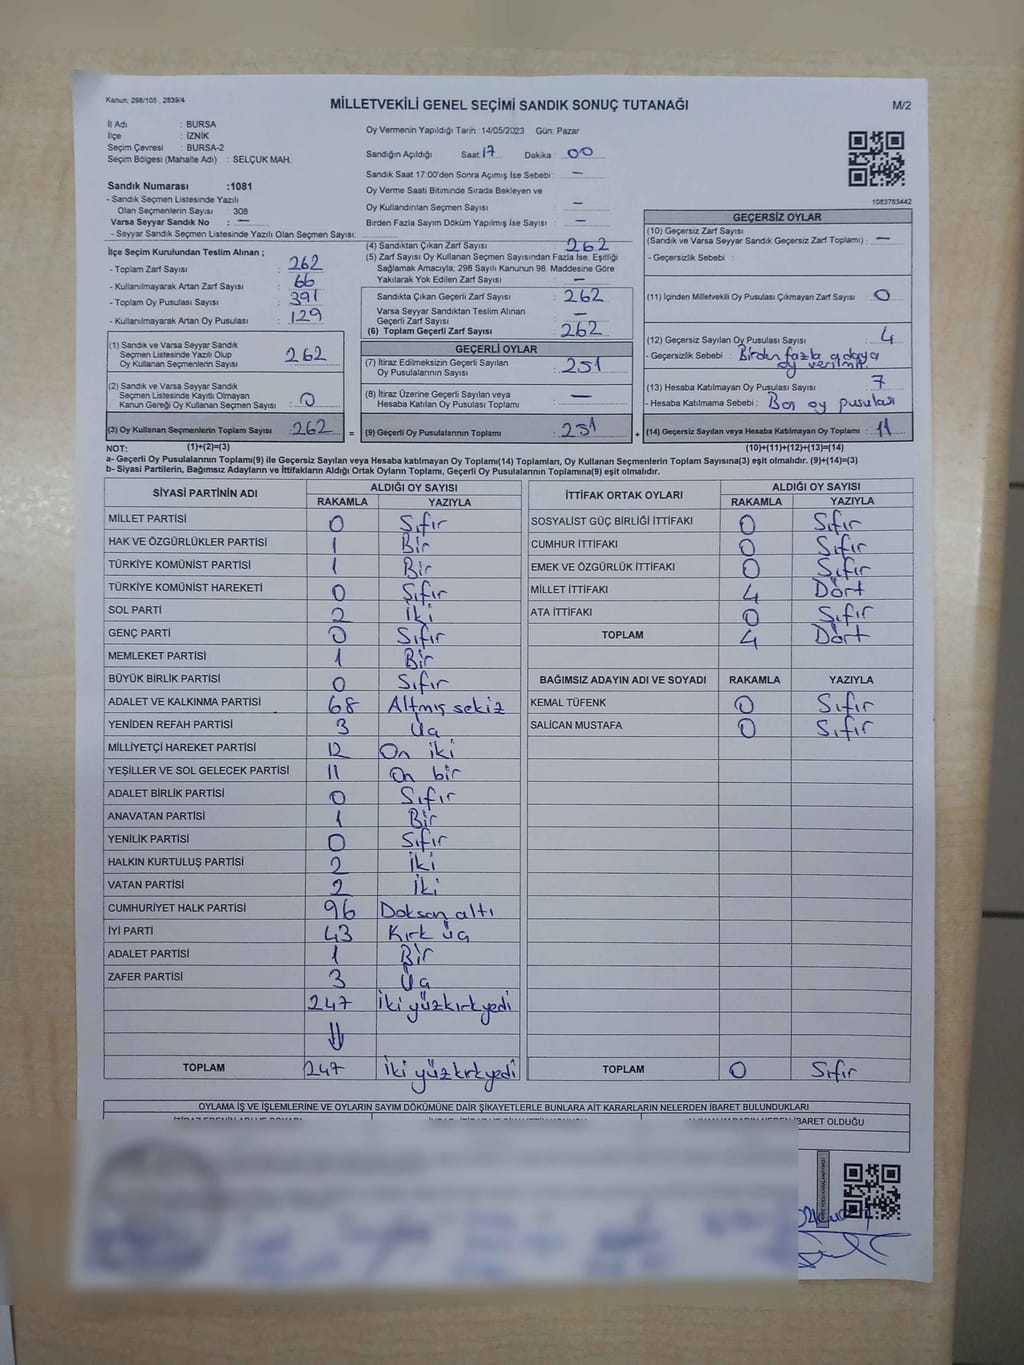 Kanun; 298/105 , 2839/4
MİLLETVEKİLİ GENEL SEÇİMİ SANDIK SONUÇ TUTANAĞI
M/2
İl Adı : BURSA
İlçe : İZNİK
Seçim Çevresi : BURSA-2
Seçim Bölgesi (Mahalle Adı) : SELÇUK MAH.
Oy Vermenin Yapıldığı Tarih : 14/05/2023 Gün: Pazar
Sandığın Açıldığı Saat 17 Dakika 00
Sandık Saat 17:00'den Sonra Açımış İse Sebebi : —
Oy Verme Saati Bitiminde Sırada Bekleyen ve
Oy Kullandırılan Seçmen Sayısı : —
Birden Fazla Sayım Döküm Yapılmış İse Sayısı : —
1083763442
Sandık Numarası :1081
- Sandık Seçmen Listesinde Yazılı
Olan Seçmenlerin Sayısı : 308
Varsa Seyyar Sandık No : —
- Seyyar Sandık Seçmen Listesinde Yazılı Olan Seçmen Sayısı:
İlçe Seçim Kurulundan Teslim Alınan ;
- Toplam Zarf Sayısı : 262
- Kullanılmayarak Artan Zarf Sayısı : 66
- Toplam Oy Pusulası Sayısı : 391
- Kullanılmayarak Artan Oy Pusulası : 129
(1) Sandık ve Varsa Seyyar Sandık
Seçmen Listesinde Yazılı Olup
Oy Kullanan Seçmenlerin Sayısı : 262
(2) Sandık ve Varsa Seyyar Sandık
Seçmen Listesinde Kayıtlı Olmayan
Kanun Gereği Oy Kullanan Seçmen Sayısı : 0
(3) Oy Kullanan Seçmenlerin Toplam Sayısı : 262
(4) Sandıktan Çıkan Zarf Sayısı : 262
(5) Zarf Sayısı Oy Kullanan Seçmen Sayısından Fazla İse, Eşitliği
Sağlamak Amacıyla; 298 Sayılı Kanunun 98. Maddesine Göre
Yakılarak Yok Edilen Zarf Sayısı : —
Sandıkta Çıkan Geçerli Zarf Sayısı : 262
Varsa Seyyar Sandıktan Teslim Alınan
Geçerli Zarf Sayısı : —
(6) Toplam Geçerli Zarf Sayısı : 262
GEÇERLİ OYLAR
(7) İtiraz Edilmeksizin Geçerli Sayılan
Oy Pusulalarının Sayısı : 251
(8) İtiraz Üzerine Geçerli Sayılan veya
Hesaba Katılan Oy Pusulası Toplamı : —
= (9) Geçerli Oy Pusulalarının Toplamı : 251 +
GEÇERSİZ OYLAR
(10) Geçersiz Zarf Sayısı
(Sandık ve Varsa Seyyar Sandık Geçersiz Zarf Toplamı) : —
- Geçersizlik Sebebi :
(11) İçinden Milletvekili Oy Pusulası Çıkmayan Zarf Sayısı : 0
(12) Geçersiz Sayılan Oy Pusulası Sayısı : 4
- Geçersizlik Sebebi : Birden fazla adaya
oy verilmiş
(13) Hesaba Katılmayan Oy Pusulası Sayısı : 7
- Hesaba Katılmama Sebebi : Boş oy pusulası
(14) Geçersiz Sayılan veya Hesaba Katılmayan Oy Toplamı : 11
NOT: (1)+(2)=(3) (10)+(11)+(12)+(13)=(14)
a- Geçerli Oy Pusulalarının Toplamı(9) ile Geçersiz Sayılan veya Hesaba katılmayan Oy Toplamı(14) Toplamları, Oy Kullanan Seçmenlerin Toplam Sayısına(3) eşit olmalıdır. (9)+(14)=(3)
b- Siyasi Partilerin, Bağımsız Adayların ve İttifakların Aldığı Ortak Oyların Toplamı, Geçerli Oy Pusulalarının Toplamına(9) eşit olmalıdır.
SİYASİ PARTİNİN ADI ALDIĞI OY SAYISI
RAKAMLA YAZIYLA
MİLLET PARTİSİ 0 Sıfır
HAK VE ÖZGÜRLÜKLER PARTİSİ 1 Bir
TÜRKİYE KOMÜNİST PARTİSİ 1 Bir
TÜRKİYE KOMÜNİST HAREKETİ 0 Sıfır
SOL PARTİ 2 İki
GENÇ PARTİ 0 Sıfır
MEMLEKET PARTİSİ 1 Bir
BÜYÜK BİRLİK PARTİSİ 0 Sıfır
ADALET VE KALKINMA PARTİSİ 68 Altmış sekiz
YENİDEN REFAH PARTİSİ 3 Üç
MİLLİYETÇİ HAREKET PARTİSİ 12 On iki
YEŞİLLER VE SOL GELECEK PARTİSİ 11 On bir
ADALET BİRLİK PARTİSİ 0 Sıfır
ANAVATAN PARTİSİ 1 Bir
YENİLİK PARTİSİ 0 Sıfır
HALKIN KURTULUŞ PARTİSİ 2 İki
VATAN PARTİSİ 2 İki
CUMHURİYET HALK PARTİSİ 96 Doksan altı
İYİ PARTİ 43 Kırk üç
ADALET PARTİSİ 1 Bir
ZAFER PARTİSİ 3 Üç
247 İki yüzkırkyedi
TOPLAM 247 İki yüzkırkyedi
İTTİFAK ORTAK OYLARI ALDIĞI OY SAYISI
RAKAMLA YAZIYLA
SOSYALİST GÜÇ BİRLİĞİ İTTİFAKI 0 Sıfır
CUMHUR İTTİFAKI 0 Sıfır
EMEK VE ÖZGÜRLÜK İTTİFAKI 0 Sıfır
MİLLET İTTİFAKI 4 Dört
ATA İTTİFAKI 0 Sıfır
TOPLAM 4 Dört
BAĞIMSIZ ADAYIN ADI VE SOYADI RAKAMLA YAZIYLA
KEMAL TÜFENK 0 Sıfır
SALİCAN MUSTAFA 0 Sıfır
TOPLAM 0 Sıfır
OYLAMA İŞ VE İŞLEMLERİNE VE OYLARIN SAYIM DÖKÜMÜNE DAİR ŞİKAYETLERLE BUNLARA AİT KARARLARIN NELERDEN İBARET BULUNDUKLARI
İBARET OLDUĞU